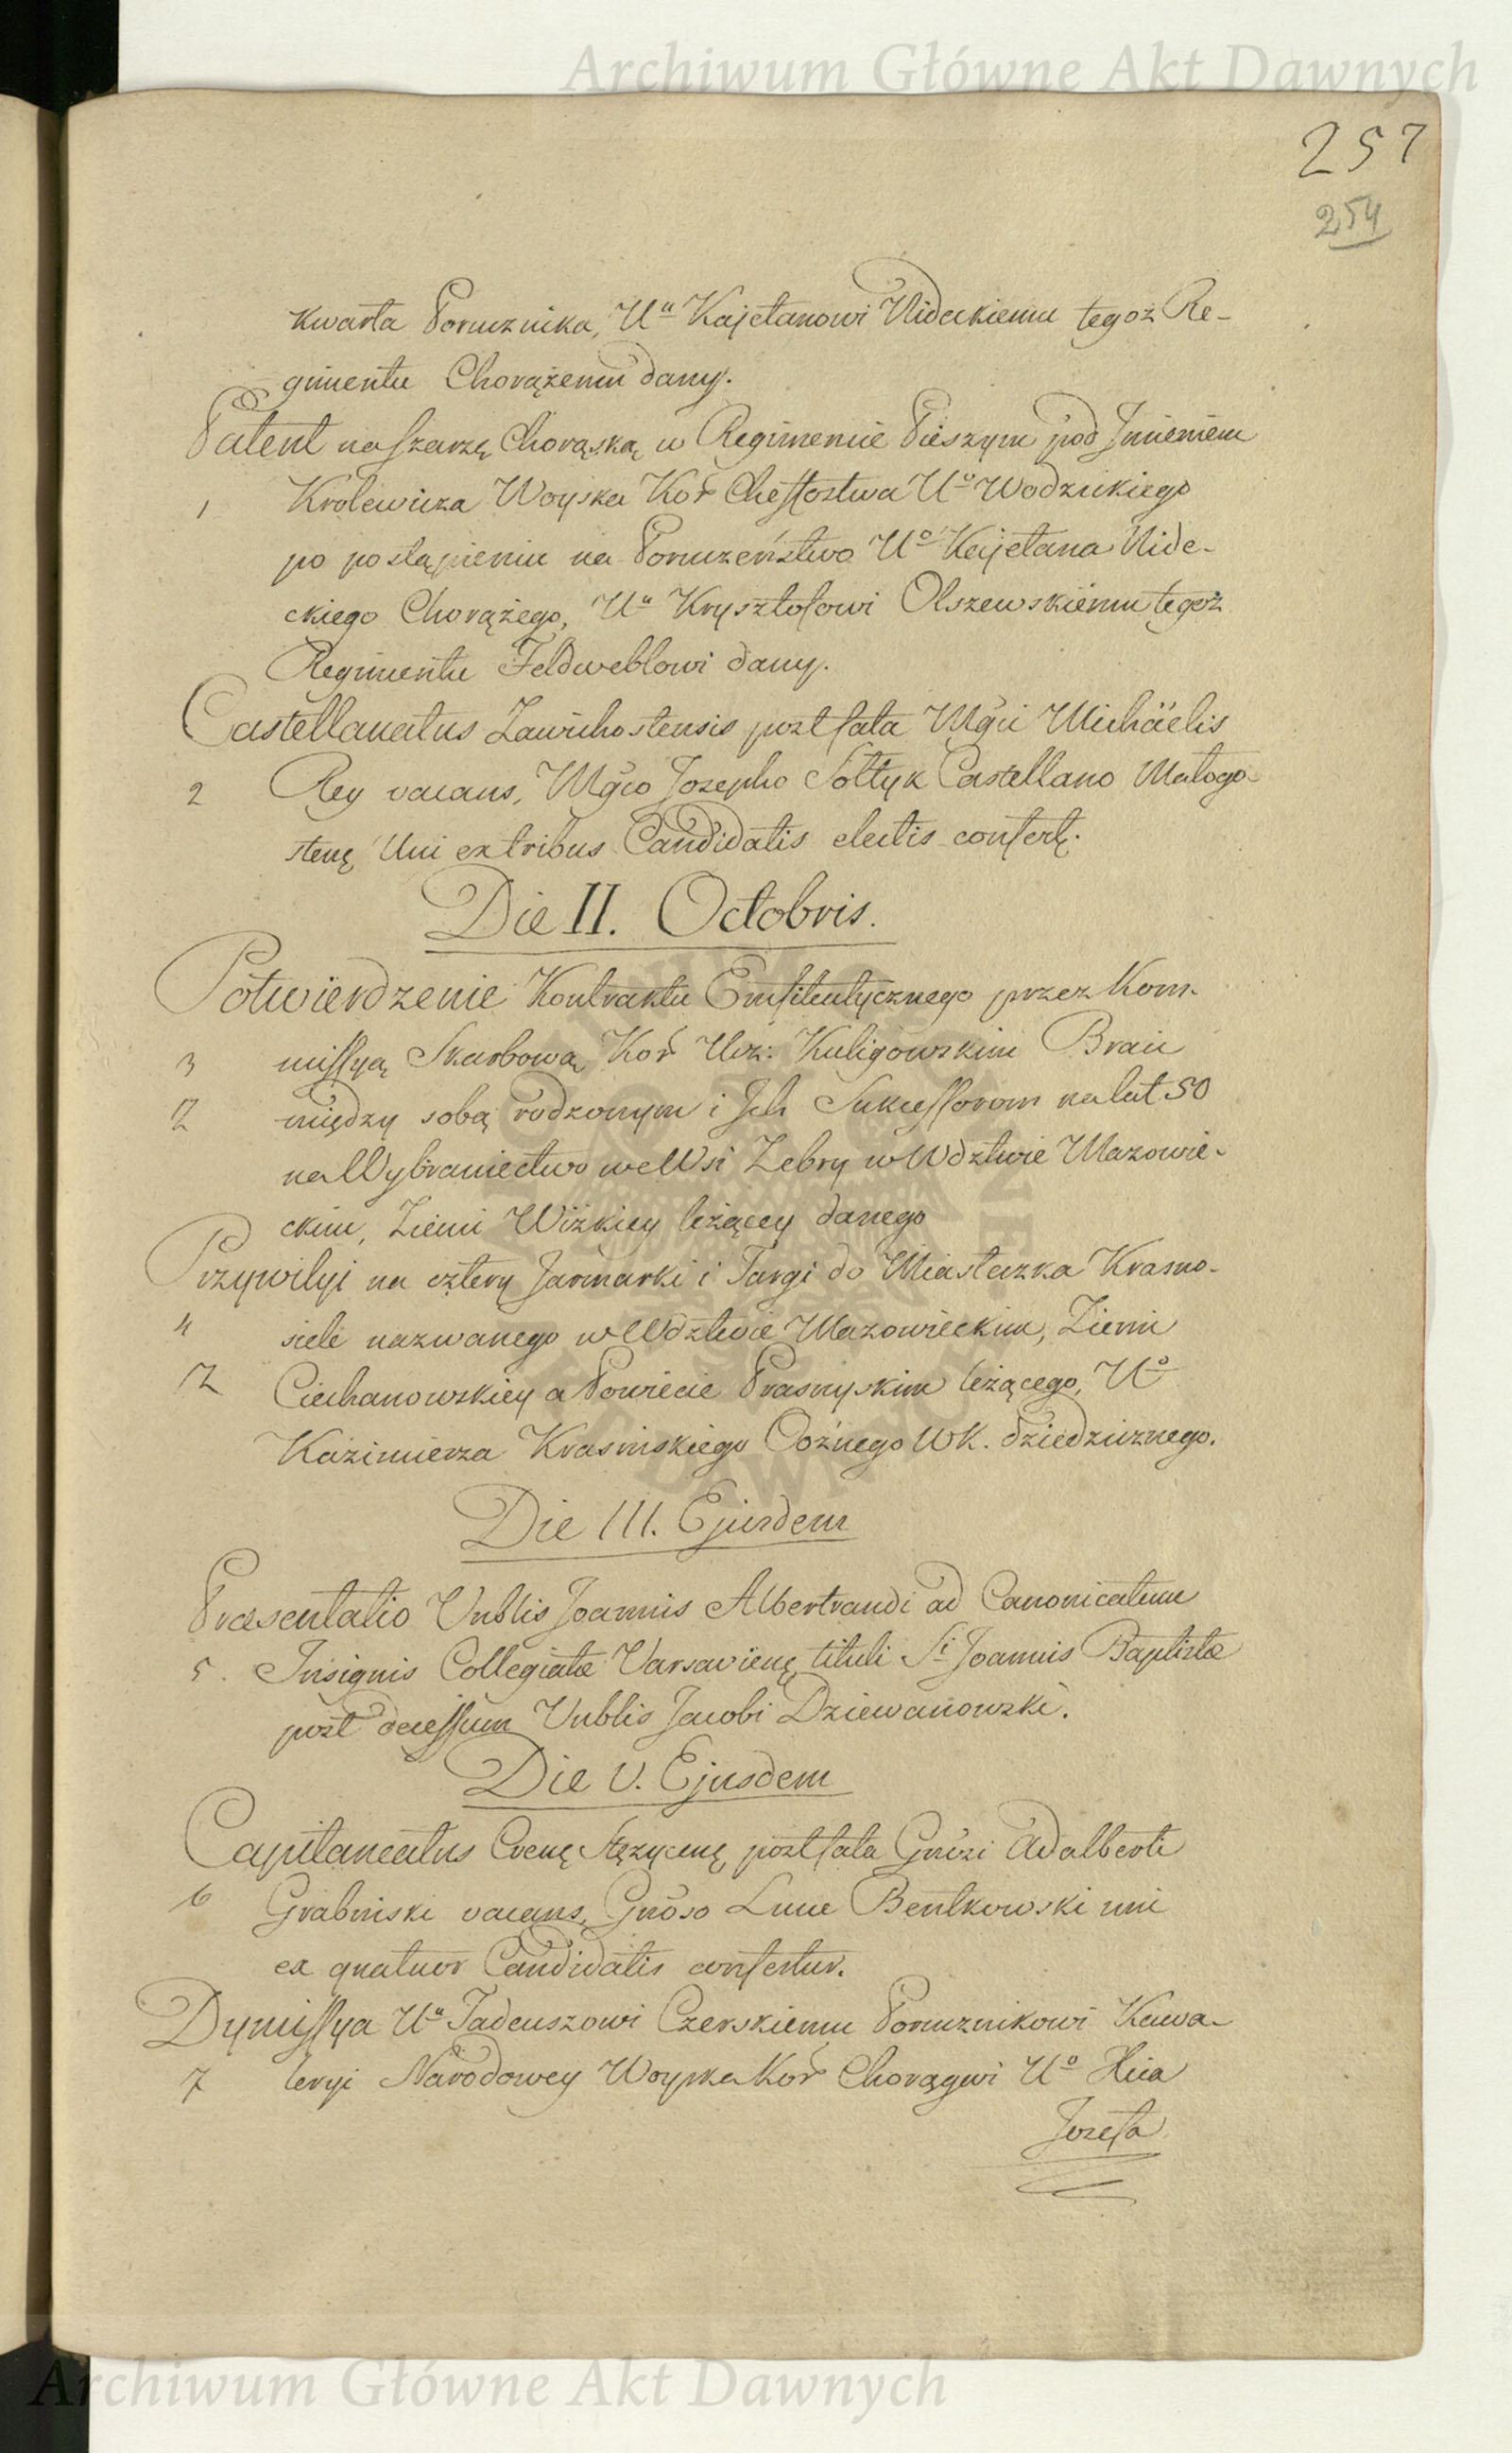 Archiwum Główne Akt Dawnych
257
254
kwarta Porucznika, Uu Kajetanowi Nideckiemu tegoż Re-
gimentu Chorążemu dany.
Patent na szarżę Chorąską w Regimencie Pieszym pod Imieniem
1 Krolewicza Woyska Kor Chefostwa Uo Wodzickiego
po postąpieniu na Poruczeństwo Uo Kajetana Nide-
ckiego Chorążego, Uu Krysztofowi Olszewskiemu tegoż
Regimentu Feldweblowi dany.
Castellanatus Zawichostensis post fata Mgci Michäelis
2 Rey vacans, Mgco Josepho Sołtyk Castellano Małogo-
stenę Uni ex tribus Candidatis electis confertę.
Die II. Octobris.
Potwierdzenie Kontraktu Emfiteutycznego przez Kom-
3 missyą Skarbową Kor Urż: Kuligowskim Braci
12 między sobą rodzonym i Ich Sukcessorom na lat 50
na Wybraniectwo we Wsi Zebry w Wdztwie Mazowie-
ckim, Ziemi Wizkiey leżącey danego
Przywilyi na cztery Jarmarki i Targi do Miasteczka Krasno-
4 siele nazwanego w Wdztwie Mazowieckim, Ziemi
12 Ciechanowskiey a Powiecie Prasnyskim leżącego, Uo
Kazimierza Krasinskiego Oożnego WK. dziedzicznego.
Die III. Ejusdem
Præsentatio Vnblis Joannis Albertrandi ad Canonicatum
5. Insignis Collegiatæ Varsavienę tituli Sti Joannis Baptistæ
post decessum Vnblis Jacobi Dziewanowski.
Die V. Ejusdem
Capitaneatus Crenę Stęzycenę post fata Gnosi Adalberti
6 Grabinski vacans, Gnoso Luce Bentkowski uni
ex quatuor Candidatis confertur.
Dymissya Uu Tadeuszowi Czerskiemu Porucznikowi Kawa-
7 leryi Narodowey Woyska Kor Chorągwi Uo
Jozefa
Archiwum Główne Akt Dawnych